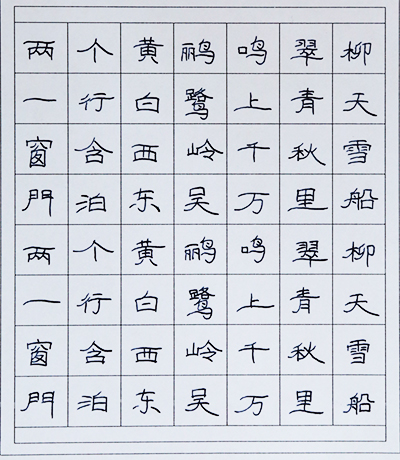 两个黄鹂鸣翠柳
一行白鹭上青天
窗含西岭千秋雪
門泊东吴万里船
两个黄鹂鸣翠柳
一行白鹭上青天
窗含西岭千秋雪
門泊东吴万里船